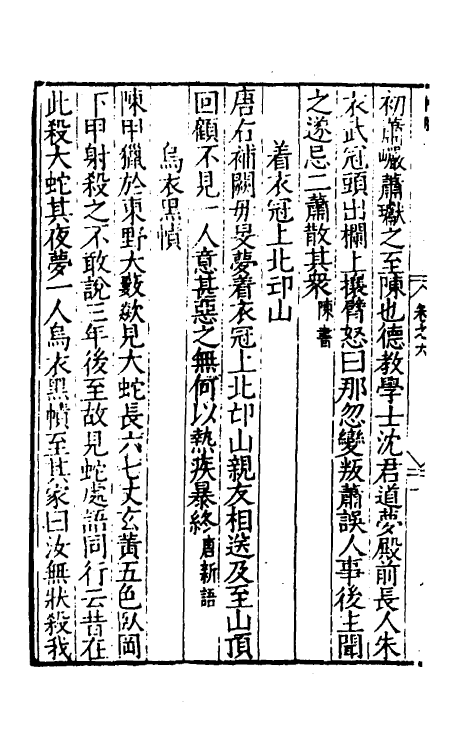 卷之六
初蕭巖蕭瓛之至陳也德教學士沈君道夢殿前長人朱
衣武冠頭出欄上攘臂怒曰那忽變叛蕭誤人事後主聞
之遂忌二蕭散其衆陳書
着衣冠上北邙山
唐右補闕毋旻夢着衣冠上北邙山親友相送及至山頂
回顧不見一人意甚惡之無何以熱疾暴終唐新語
烏衣黑幘
陳甲獵於東野大藪欻見大蛇長六七丈玄黃五色臥岡
下甲射殺之不敢說三年後至故見蛇處語同行云昔在
此殺大蛇其夜夢一人烏衣黑幘至其家曰汝無狀殺我